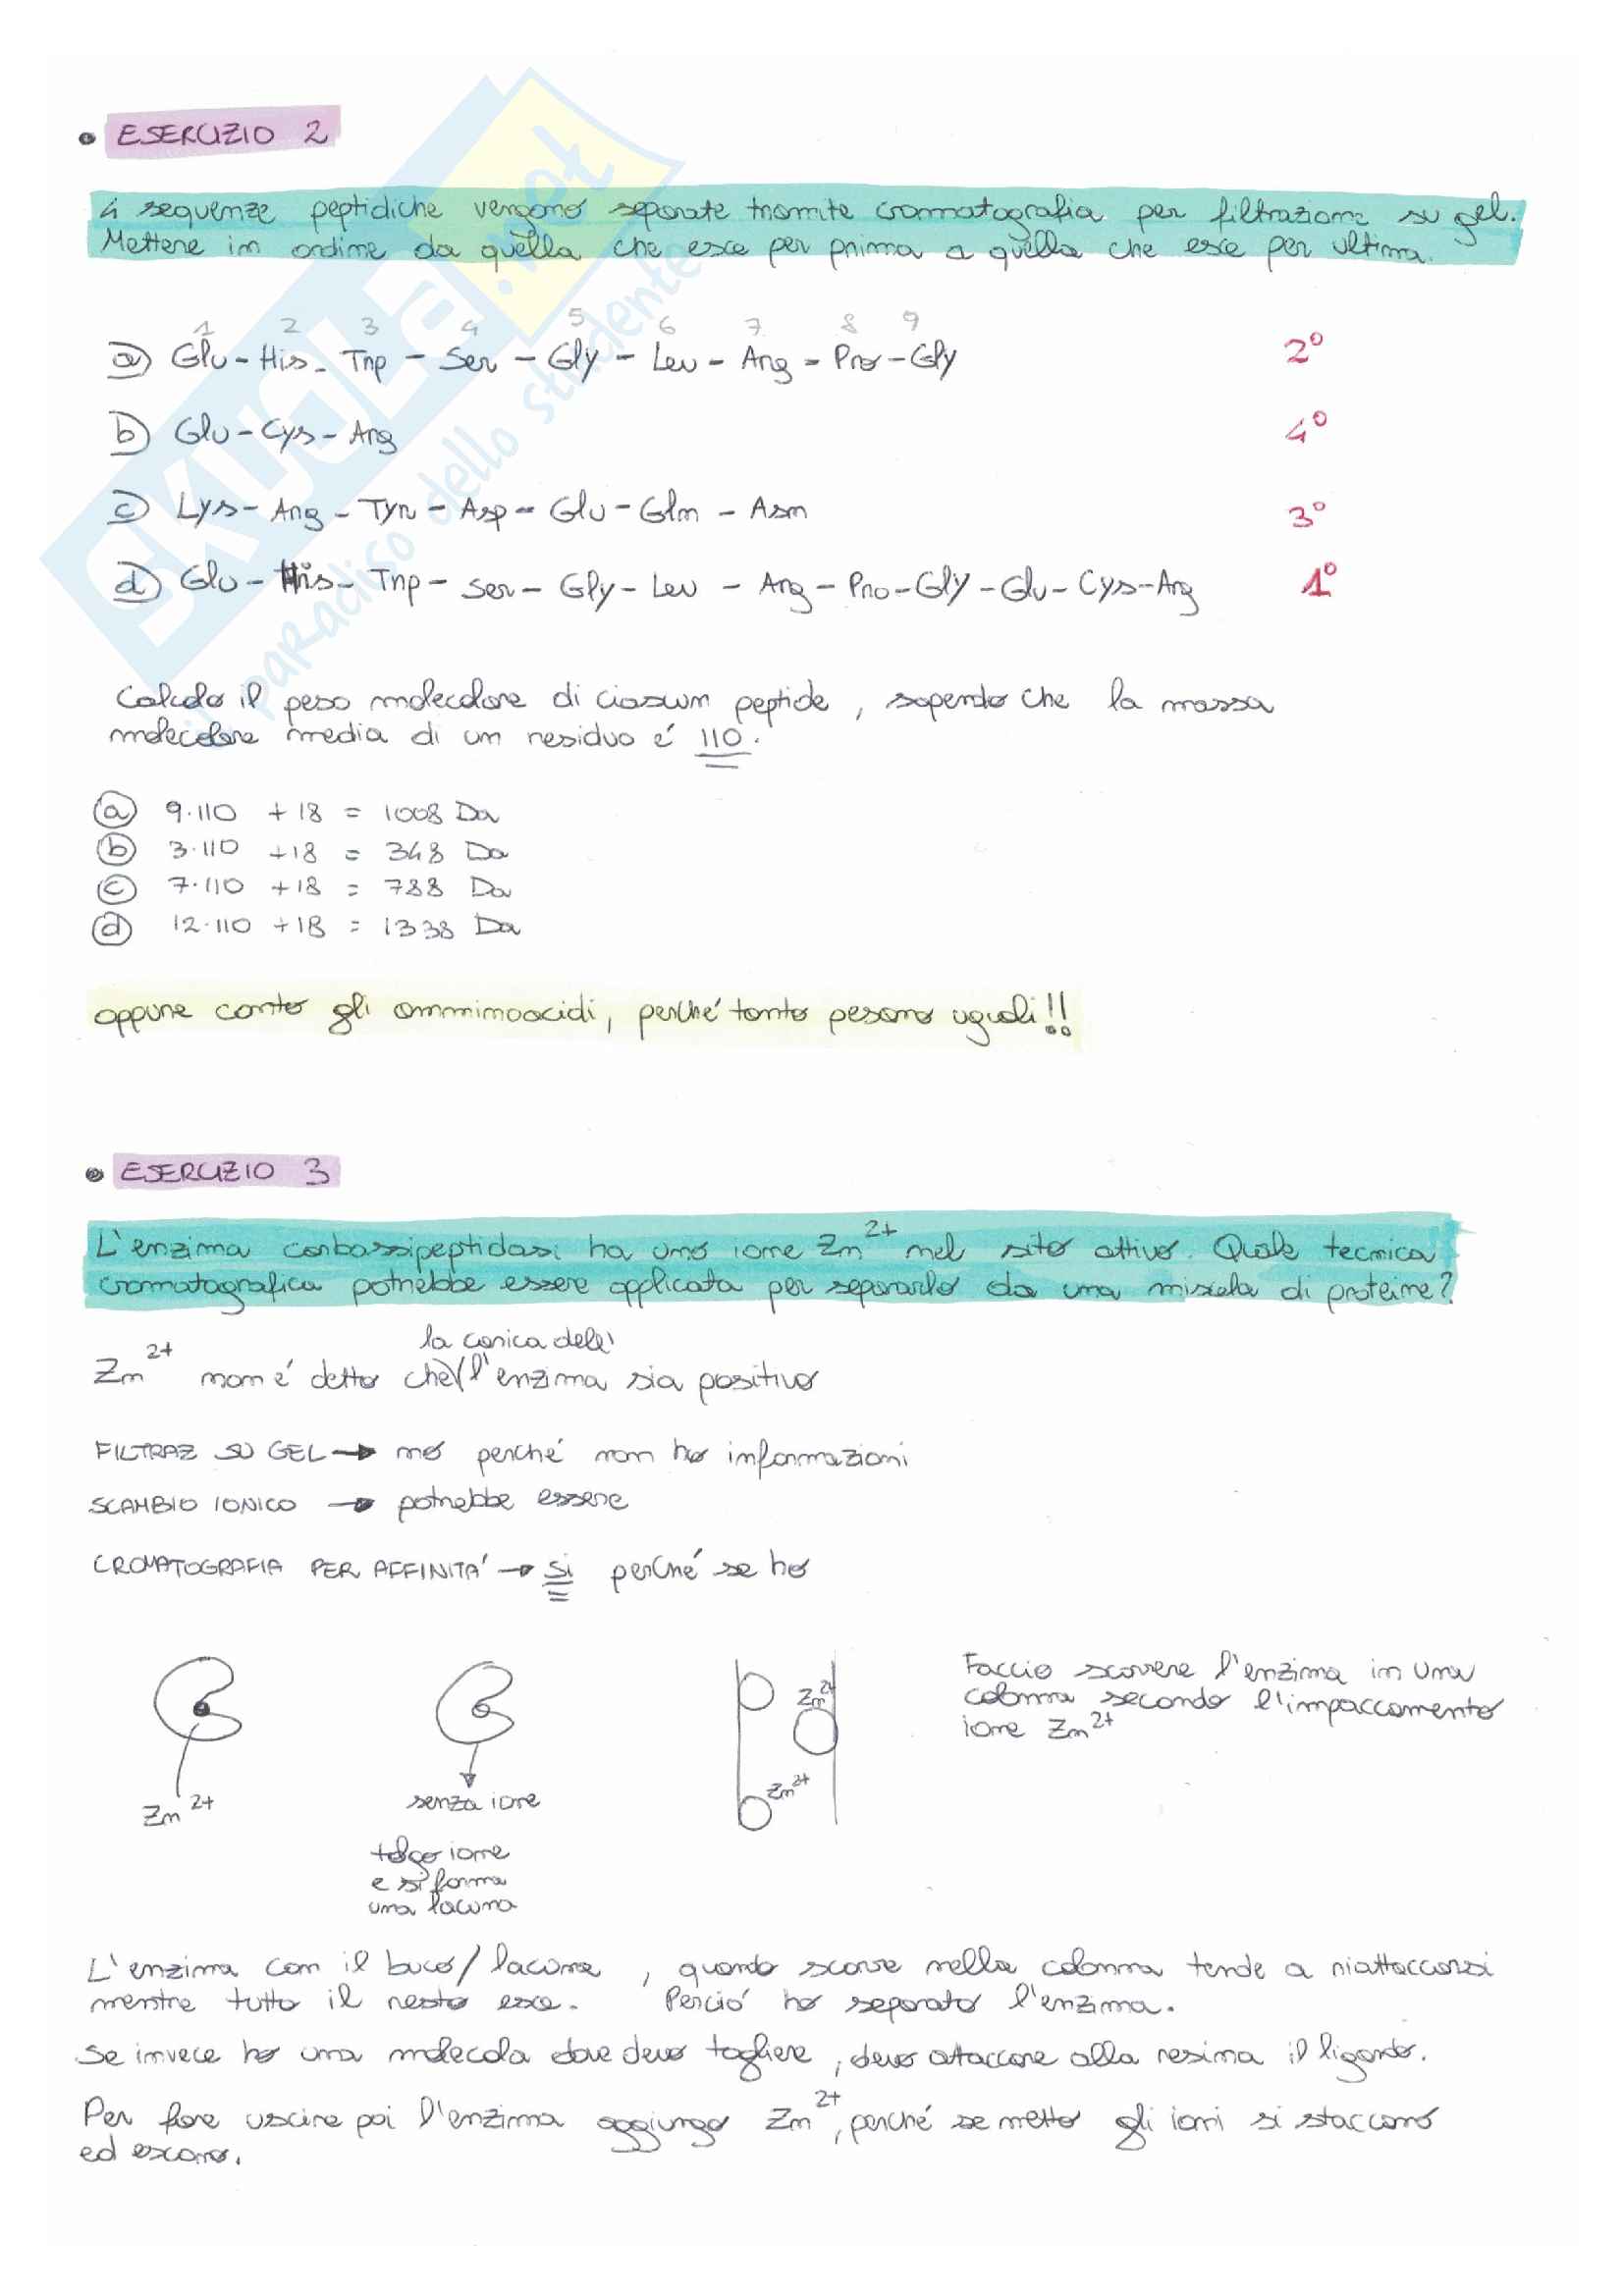 • ESERCIZIO 2
4 sequenze peptidiche vengono separate tramite cromatografia per filtrazione su gel.
Mettere in ordine da quella che esce per prima a quella che esce per ultima.
1 2 3 4 5 6 7 8 9
a) Glu - His - Trp - Ser - Gly - Leu - Arg - Pro - Gly 2°
b) Glu - Cys - Arg 4°
c) Lys - Arg - Tyr - Asp - Glu - Gln - Asn 3°
d) Glu - His - Trp - Ser - Gly - Leu - Arg - Pro - Gly - Glu - Cys - Arg 1°
Calcolo il peso molecolare di ciascun peptide, sapendo che la massa
molecolare media di un residuo é 110.
a 9·110 + 18 = 1008 Da
b 3·110 + 18 = 348 Da
c 7·110 + 18 = 788 Da
d 12·110 + 18 = 1338 Da
oppure conto gli amminoacidi, perché tanto pesano uguali!!
• ESERCIZIO 3
L'enzima carbossipeptidasi ha uno ione Zn2+ nel sito attivo. Quale tecnica
cromatografica potrebbe essere applicata per separarlo da una miscela di proteine?
la carica dell'
Zn2+ non é detto che l'enzima sia positivo
FILTRAZ SU GEL → no perché non ho informazioni
SCAMBIO IONICO → potrebbe essere
CROMATOGRAFIA PER AFFINITA' → si perché se ho
Zn2+
senza ione
tolgo ione
e si forma
una lacuna
Zn2+
Zn2+
Faccio scorrere l'enzima in una
colonna secondo l'impaccamento
ione Zn2+
L'enzima con il buco/lacuna, quando scorre nella colonna tende a riattaccarsi
mentre tutto il resto esce. Perció ho separato l'enzima.
Se invece ho una molecola dove devo togliere, devo attaccare alla resina il ligando.
Per fare uscire poi l'enzima aggiungo Zn2+, perché se metto gli ioni si staccano
ed escono.
SKUOLA.net
il paradiso dello studente